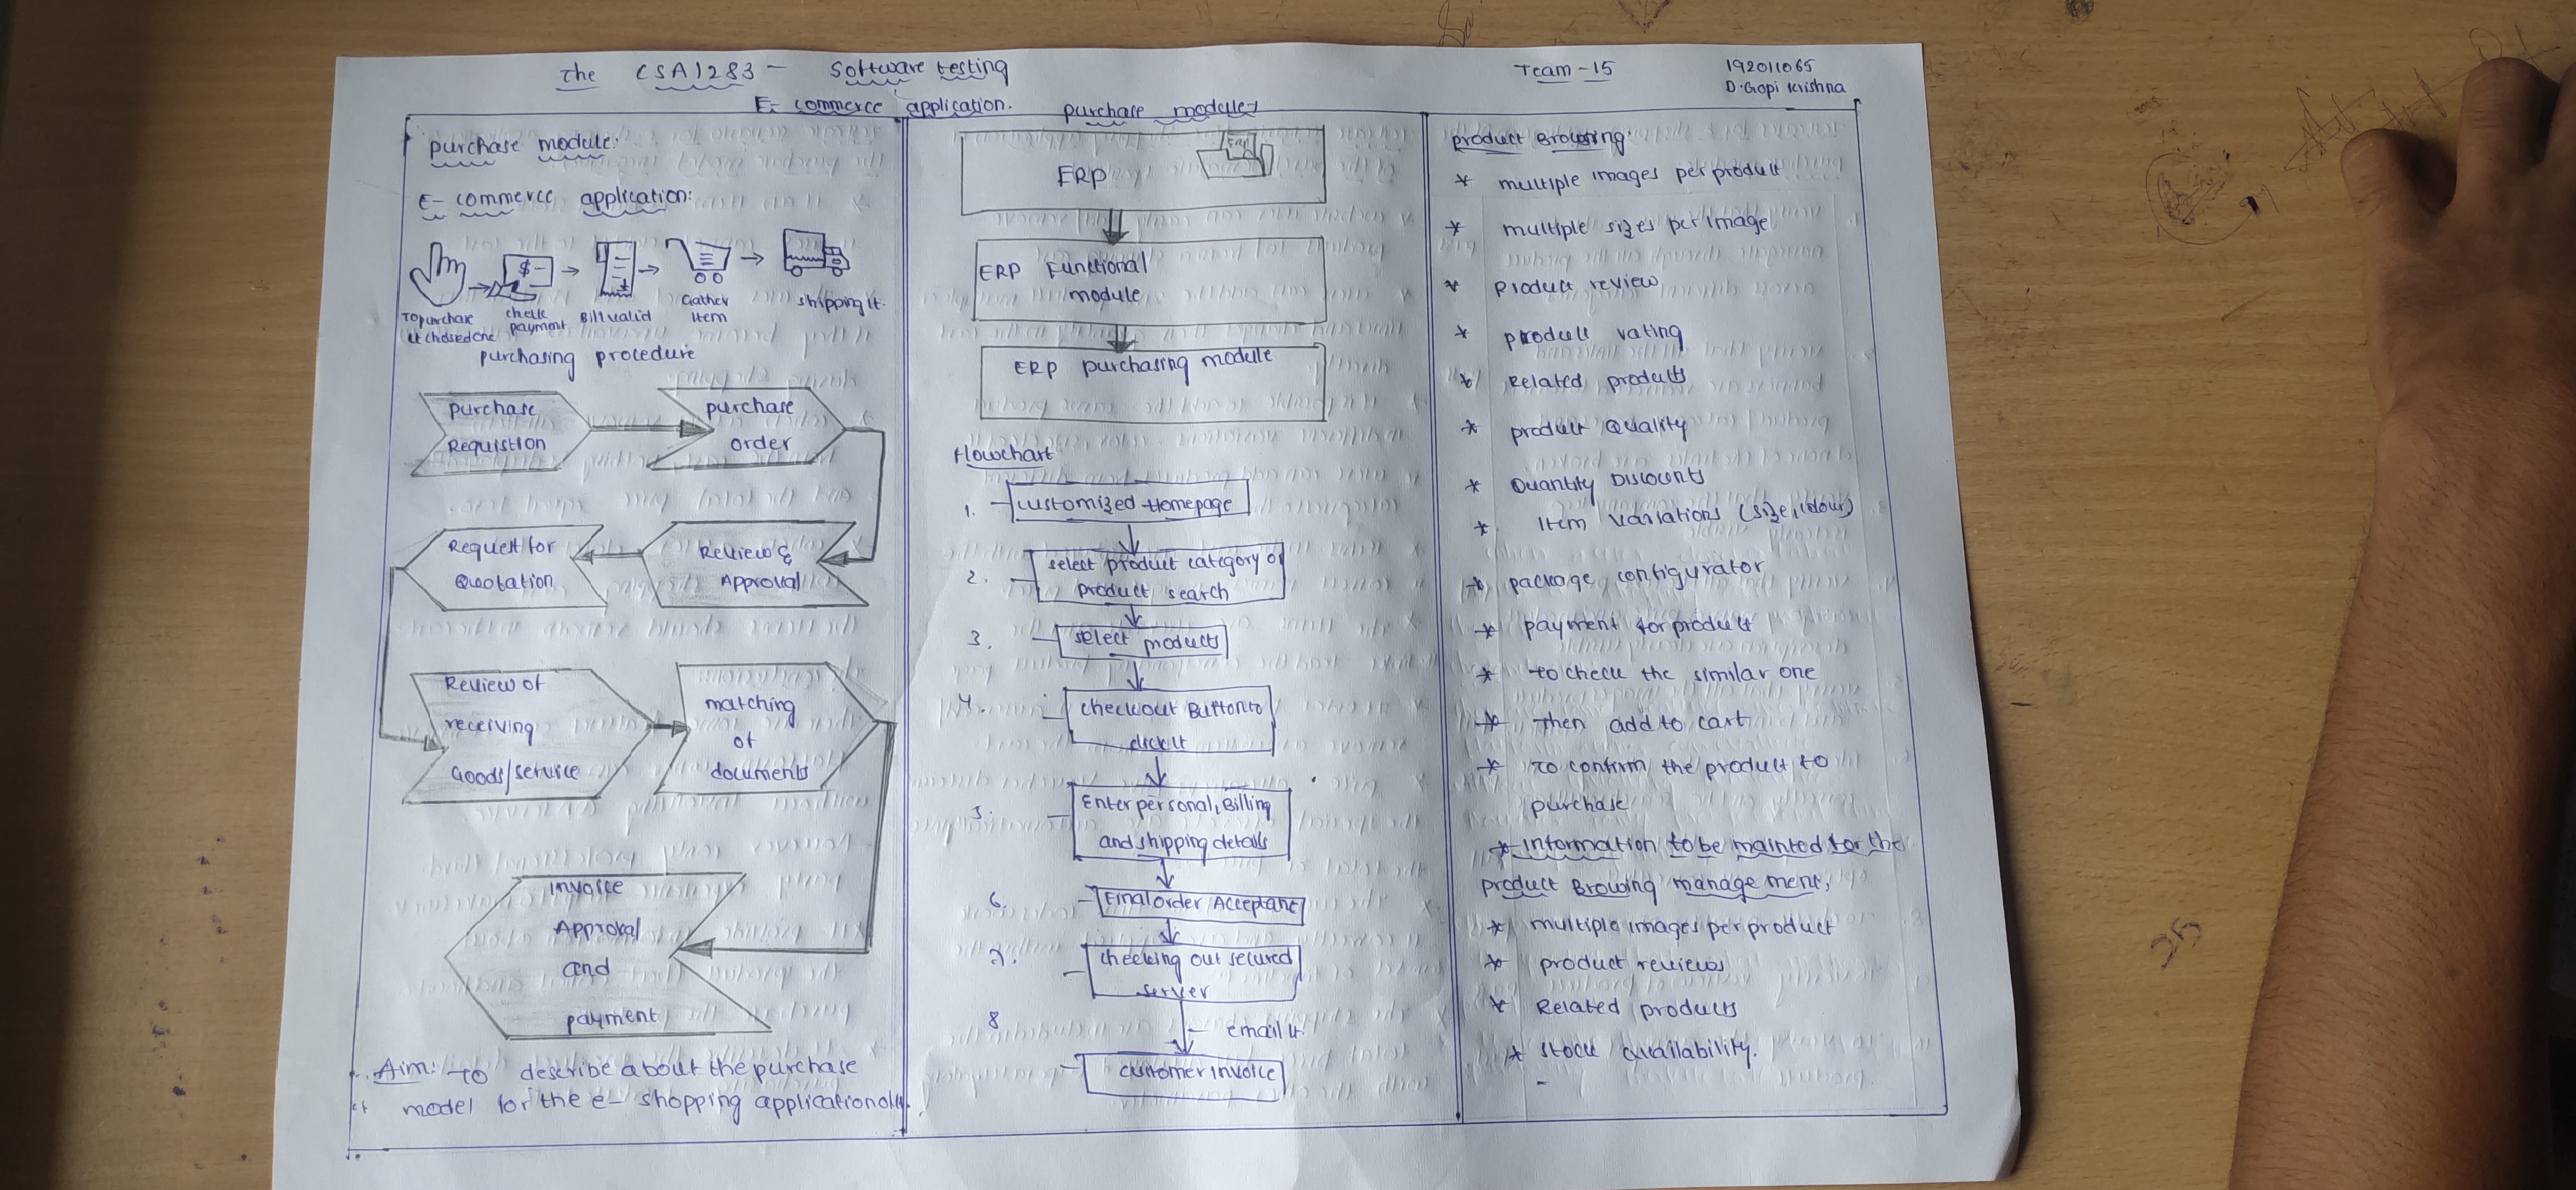 The CSA1283 - Software testing
Team-15
192011065
D.Gopi Krishna
E-commerce application.
purchase module
purchase module:
E-commerce application:
To purchase
check
payment
Bill valid
Gather
item
shipping it.
purchasing procedure
purchase
Requistion
purchase
order
Request for
Quotation
Review &
Approval
Review of
receiving
Goods/service
matching
of
documents
Invoice
Approval
and
payment
Aim:- To describe about the purchase
model for the e-shopping application
ERP
ERP Functional
module
ERP purchasing module
flowchart
1. customized Homepage
2. select product category or
product search
3. select products
4. checkout Button to
click it
5. Enter personal, Billing
and shipping details
6. Final order Acceptane
7. checking out secured
server
8 - email it
customer invoice
product Browsing:
* multiple images per product
* multiple sizes per image
* product review
* product rating
* Related products
* product Quality
* Quantity Discounts
* Item variations (size, colour)
* package configurator
* payment for product
* to check the similar one
* then add to cart
* To confirm the product to
purchase
* Information to be mainted for the
product Browing management,
* multiple images per product
* product reviews
* Related products
* stock availability.